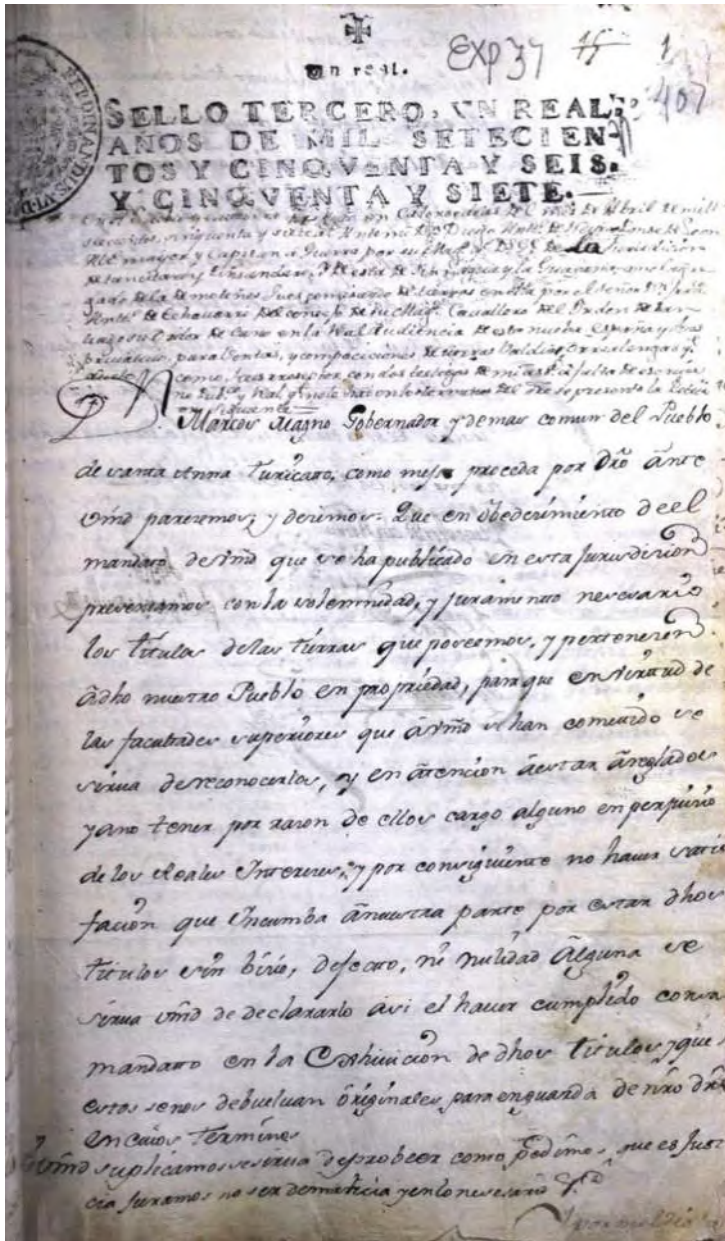 Un real.
EXP 37 15 1
407
FERDINANDUS·VI·D·
SELLO TERCERO, VN REAL,
AÑOS DE MIL SETECIEN-
TOS Y CINQVENTA Y SEIS,
Y CINQVENTA Y SIETE.
en Catorze dias del mes de Abril de mill
setecientos, cinquenta y siete Dn Diego
Alcde mayor y Capitan a Guerra por su Magd de la Jurisdicion
de tancitaro y y la
de tierras en por el señor Dn
de Echavarri del consejo de su Magd Cavallero del Orden de San-
tiago oydor de en la Real Audiencia de esta nueba España y
para Ventas, y composiciones de tierras Valdias
como Juez receptor con dos testigos de mi asista a falta de escriva-
no Pubco y Real
siguiente
Dn Marcos Magno Gobernador y demas comun del Pueblo
de santa Anna Turicato, como mejor proceda por Dro ante
Vmd parecemos, y decimos: Que en obedecimiento de el
mandato de vmd que se ha publicado en esta Jurisdicion
presentamos con la solemnidad, y juramento necesario
los titulos de las tierras que poseemos, y pertenecen
a dho nuestro Pueblo en propriedad, para que en virtud de
las facultades superiores que a vmd se han cometido se
sirva de reconocerlos, y en atencion a estar arreglados
y a no tener por razon de ellos cargo alguno en perjuicio
de los Reales Intereses, y por consiguiente no haver satis
facion que Incumba a nuestra parte por estar dhos
titulos sin bicio, defecto, ni nulidad Alguna se
sirva vmd de declararlo asi el haver cumplido con su
mandatto en la Exhivicion de dhos titulos, y que
estos se nos debuelvan originales, para en guarda de nro dro
en cuios terminos
A Vmd suplicamos se sirva de probeer como Pedimos, que es Justi
cia Juramos no ser de malicia y en lo necesario &a